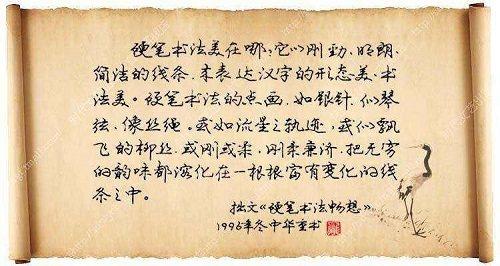 硬笔书法美在哪?它以刚劲、明朗、
简洁的线条,来表达汉字的形态美、书
法美。硬笔书法的点画,如银针、似琴
弦、像丝绳。或如流星之轨迹,或似飘
飞的柳丝,或刚或柔,刚柔兼济,把无穷
的韵味都溶化在一根根富有变化的线
条之中。
拙文《硬笔书法畅想》
1995年冬中华重书